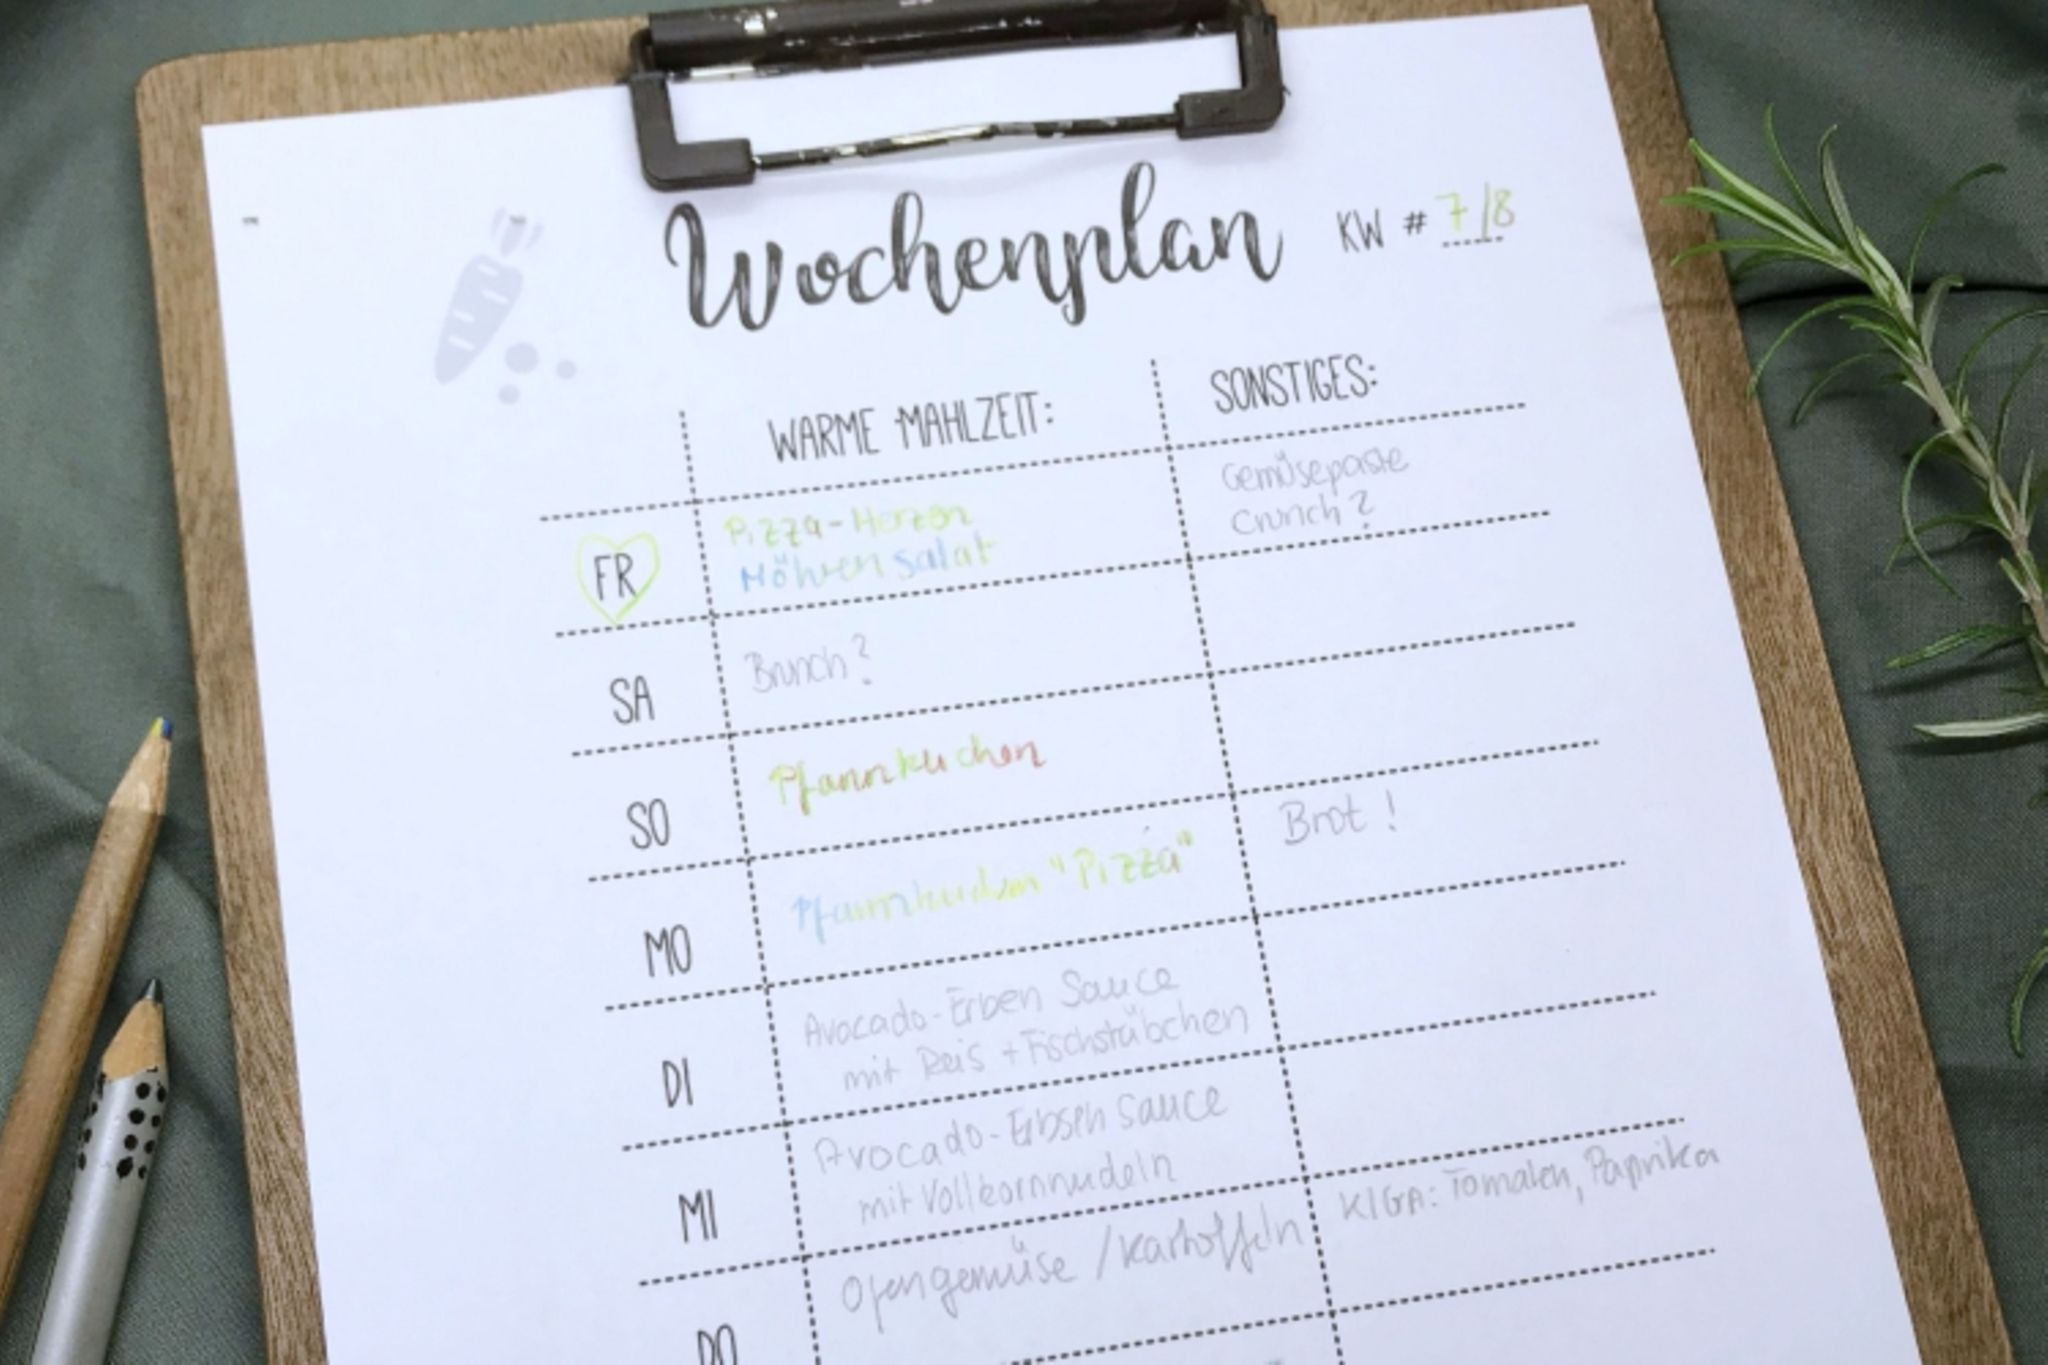 Wochenplan KW # 7/8
WARME MAHLZEIT: SONSTIGES:
FR
Pizza-Herzen
Möhrensalat
Gemüsepaste
Crunch?
SA Brunch?
SO Pfannkuchen
MO Pfannkuchen "Pizza" Brot!
DI
Avocado-Erben Sauce
mit Reis + Fischstäbchen
MI
Avocado-Erbsen Sauce
mit Vollkornnudeln
DO Ofengemüse / Kartoffeln KIGA: Tomaten, Paprika